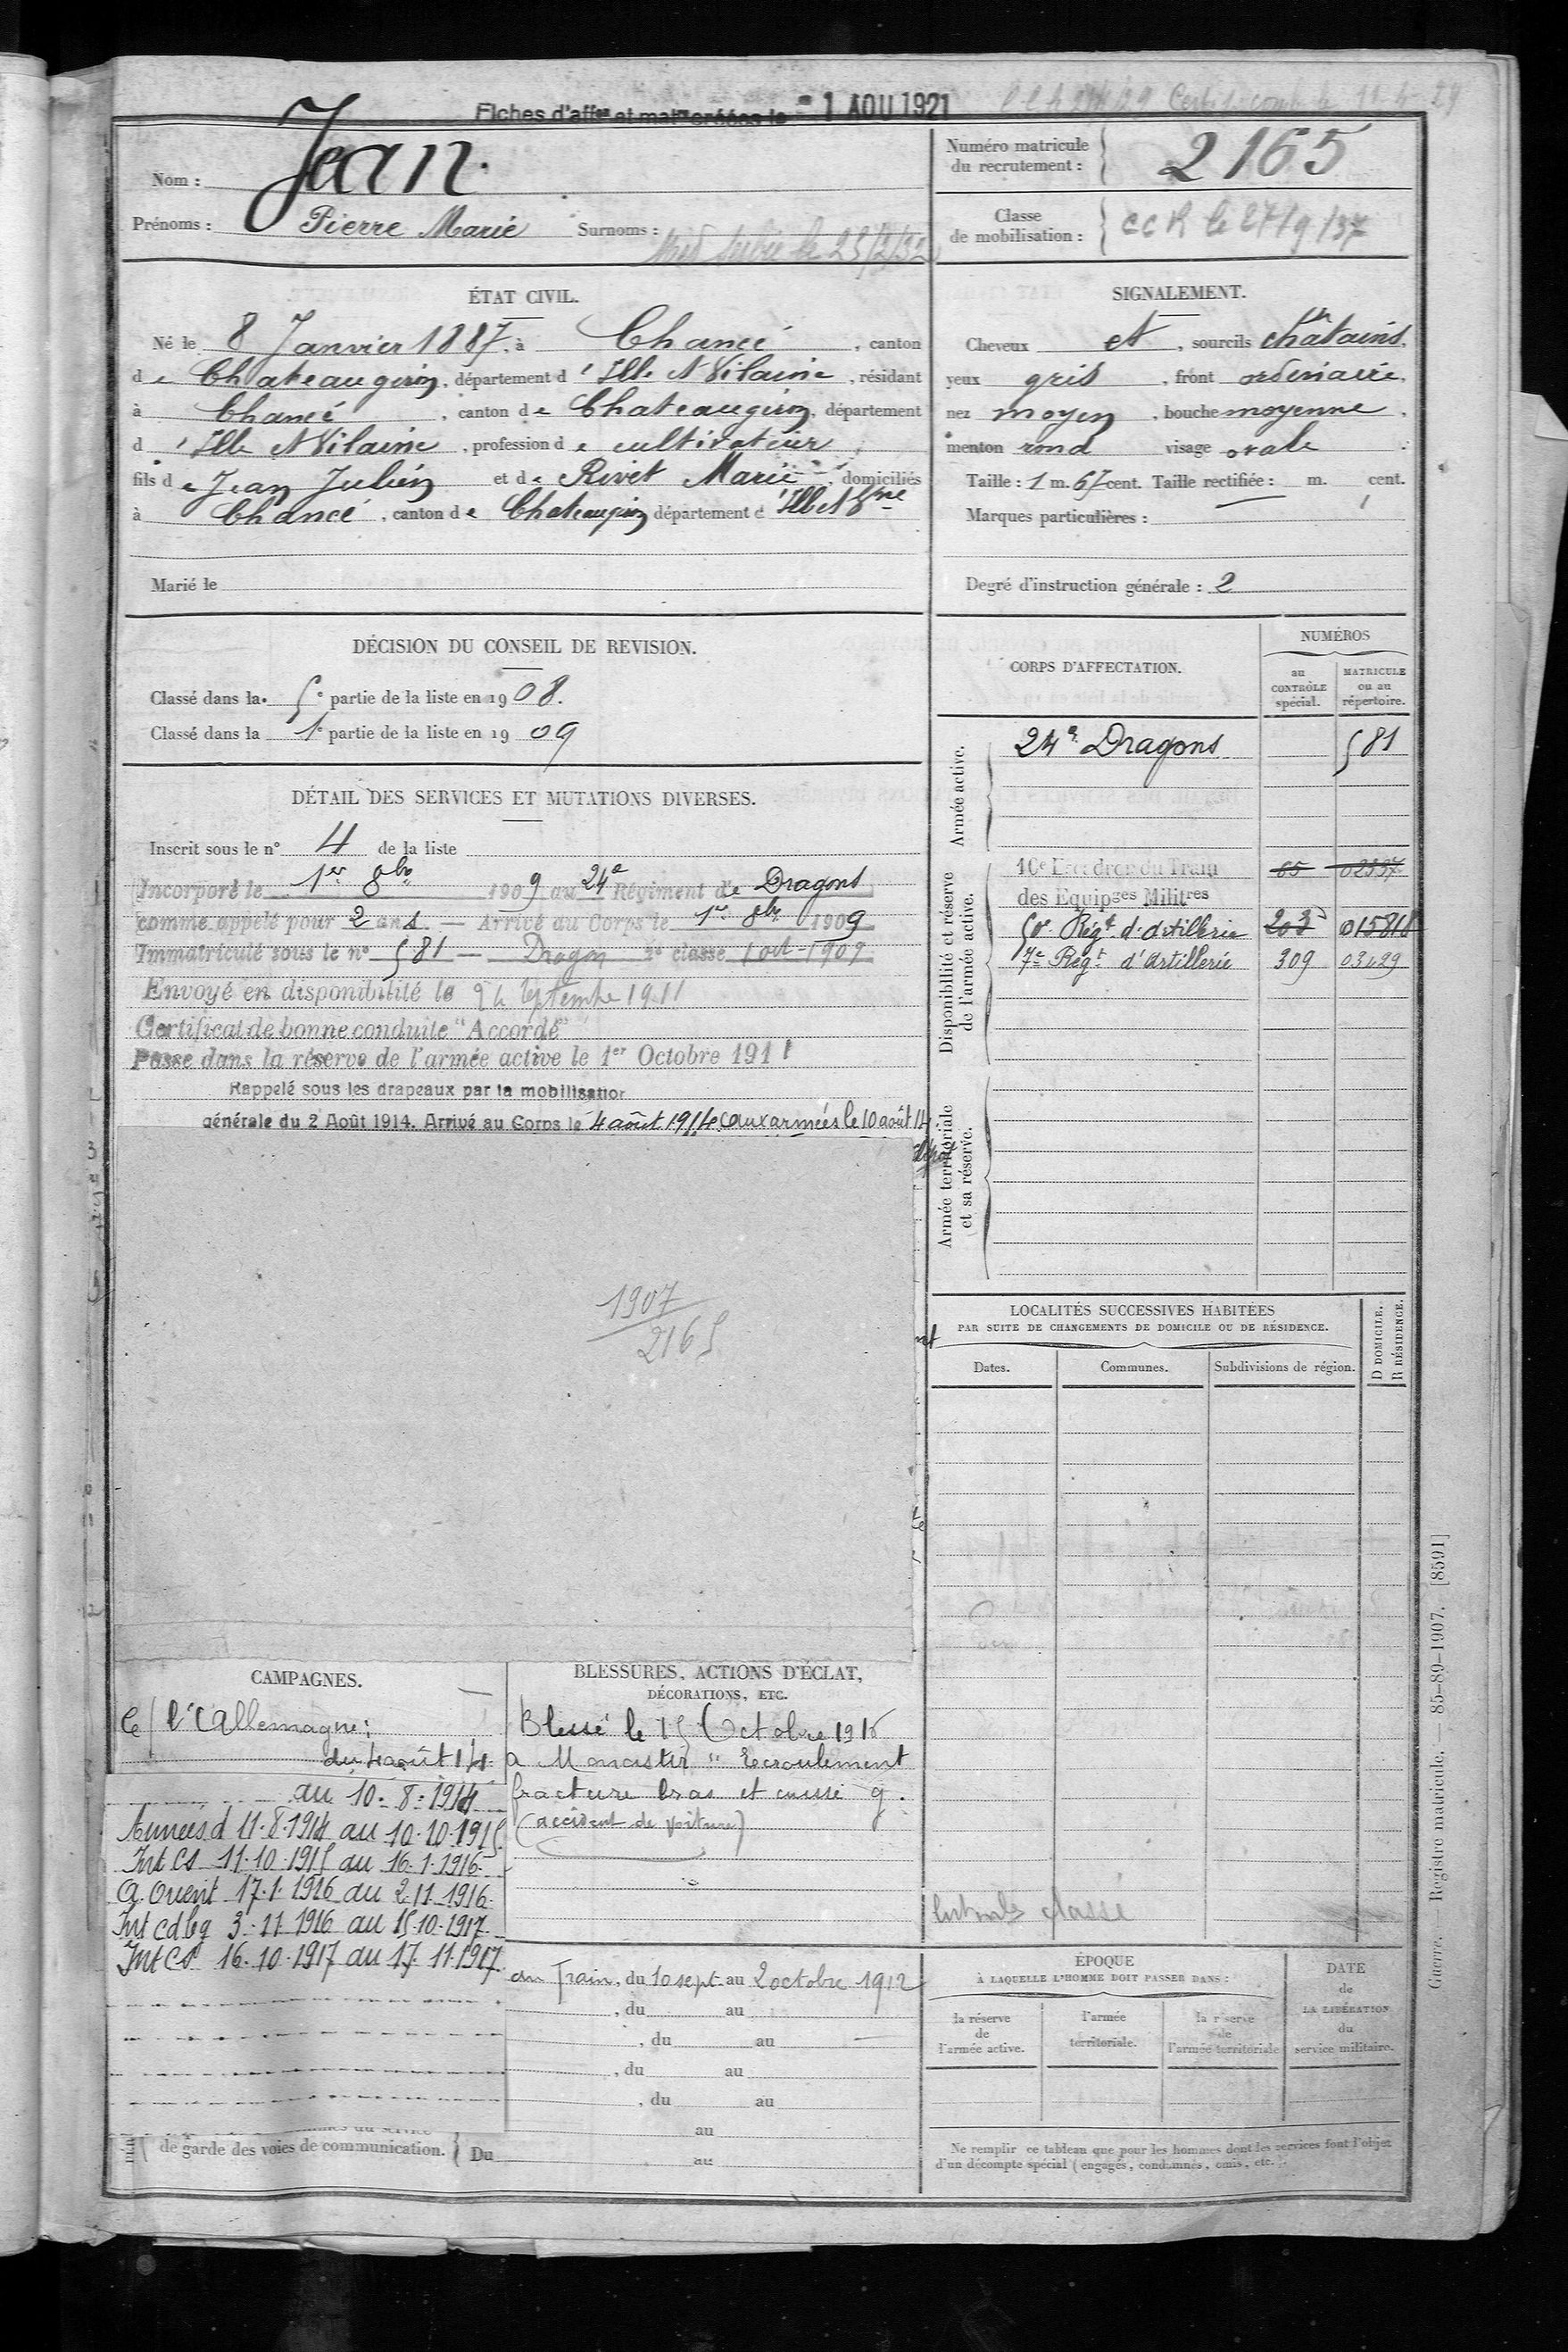 Fiches d'aff^on et mat^on créées le - 1 AOU 1921
Nom : Jean
Prénoms : Pierre Marie Surnoms :
le 23/2/32
Numéro matricule
du recrutement : 2165
Classe
de mobilisation : CCR le 27/9/37
ÉTAT CIVIL.
Né le 8 Janvier 1887, à Chancé, canton
de Chateaugiron, département d'Ille et Vilaine, résidant
à Chancé, canton de Chateaugiron, département
d'Ille et Vilaine, profession de cultivateur,
fils de Jean Julien et de Rivet Marie, domiciliés
à Chancé, canton de Chateaugiron département d'Ille et Vne
Marié le
SIGNALEMENT.
Cheveux et, sourcils châtains,
yeux gris, front ordinaire,
nez moyen, bouche moyenne,
menton rond visage ovale
Taille : 1 m. 67 cent. Taille rectifiée : m. cent.
Marques particulières :
Degré d'instruction générale : 2
DÉCISION DU CONSEIL DE REVISION.
Classé dans la 5e partie de la liste en 1908.
Classé dans la 1e partie de la liste en 1909
DÉTAIL DES SERVICES ET MUTATIONS DIVERSES.
Inscrit sous le n° 4 de la liste
Incorporé le 1er 8bre 1909 au 24e Régiment de Dragons
comme appelé pour 2 ans — Arrivé au Corps le 1er 8bre 1909
Immatriculé sous le n° 581 — Dragon 2e classe 1 oct 1909
Envoyé en disponibilité le 24 Septembre 1911
Certificat de bonne conduite "Accordé"
Passe dans la réserve de l'armée active le 1er Octobre 1911
Rappelé sous les drapeaux par la mobilisation
générale du 2 Août 1914. Arrivé au Corps le 4 août 1914 aux armées le 10 août 14
1907
2165
CORPS D'AFFECTATION.
NUMÉROS
au
CONTRÔLE
spécial.
MATRICULE
ou au
répertoire.
Armée active.
24e Dragons 581
Disponibilité et réserve
de l'armée active.
10e Escadron du Train 65 02337
des Equipges Militres
50e Régt d'Artillerie 203 015818
7e Régt d'Artillerie 309 03429
Armée territoriale
et sa réserve.
LOCALITÉS SUCCESSIVES HABITÉES
PAR SUITE DE CHANGEMENTS DE DOMICILE OU DE RÉSIDENCE.
Dates. Communes. Subdivisions de région.
D DOMICILE.
R RÉSIDENCE.
classé
CAMPAGNES.
C/ l'Allemagne :
du 4 août 14
au 10-8-1914
Armées d 11.8.1914 au 10.10.1915
Int CS 11.10.1915 au 16.1.1916
A. Orient 17.1.1916 au 2.11.1916
Int cd bg 3.11.1916 au 15.10.1917
Int CS 16.10.1917 au 17.11.1917
BLESSURES, ACTIONS D'ÉCLAT,
DÉCORATIONS, ETC.
Blessé le 15 Octobre 1916
a Monastir "Ecroulement
fracture bras et cuisse g.
(accident de voiture)
du Train, du 10 sept. au 2 octobre 1912
, du au
, du au
, du au
, du au
au
de garde des voies de communication. Du au
ÉPOQUE
À LAQUELLE L'HOMME DOIT PASSER DANS :
la réserve
de
l'armée active.
l'armée
territoriale.
la réserve
de
l'armée territoriale
DATE
de
LA LIBÉRATION
du
service militaire.
Ne remplir ce tableau que pour les hommes dont les services font l'objet
d'un décompte spécial (engagés, condamnés, omis, etc.).
Guerre. — Registre matricule. — 85-89-1907. [8591]